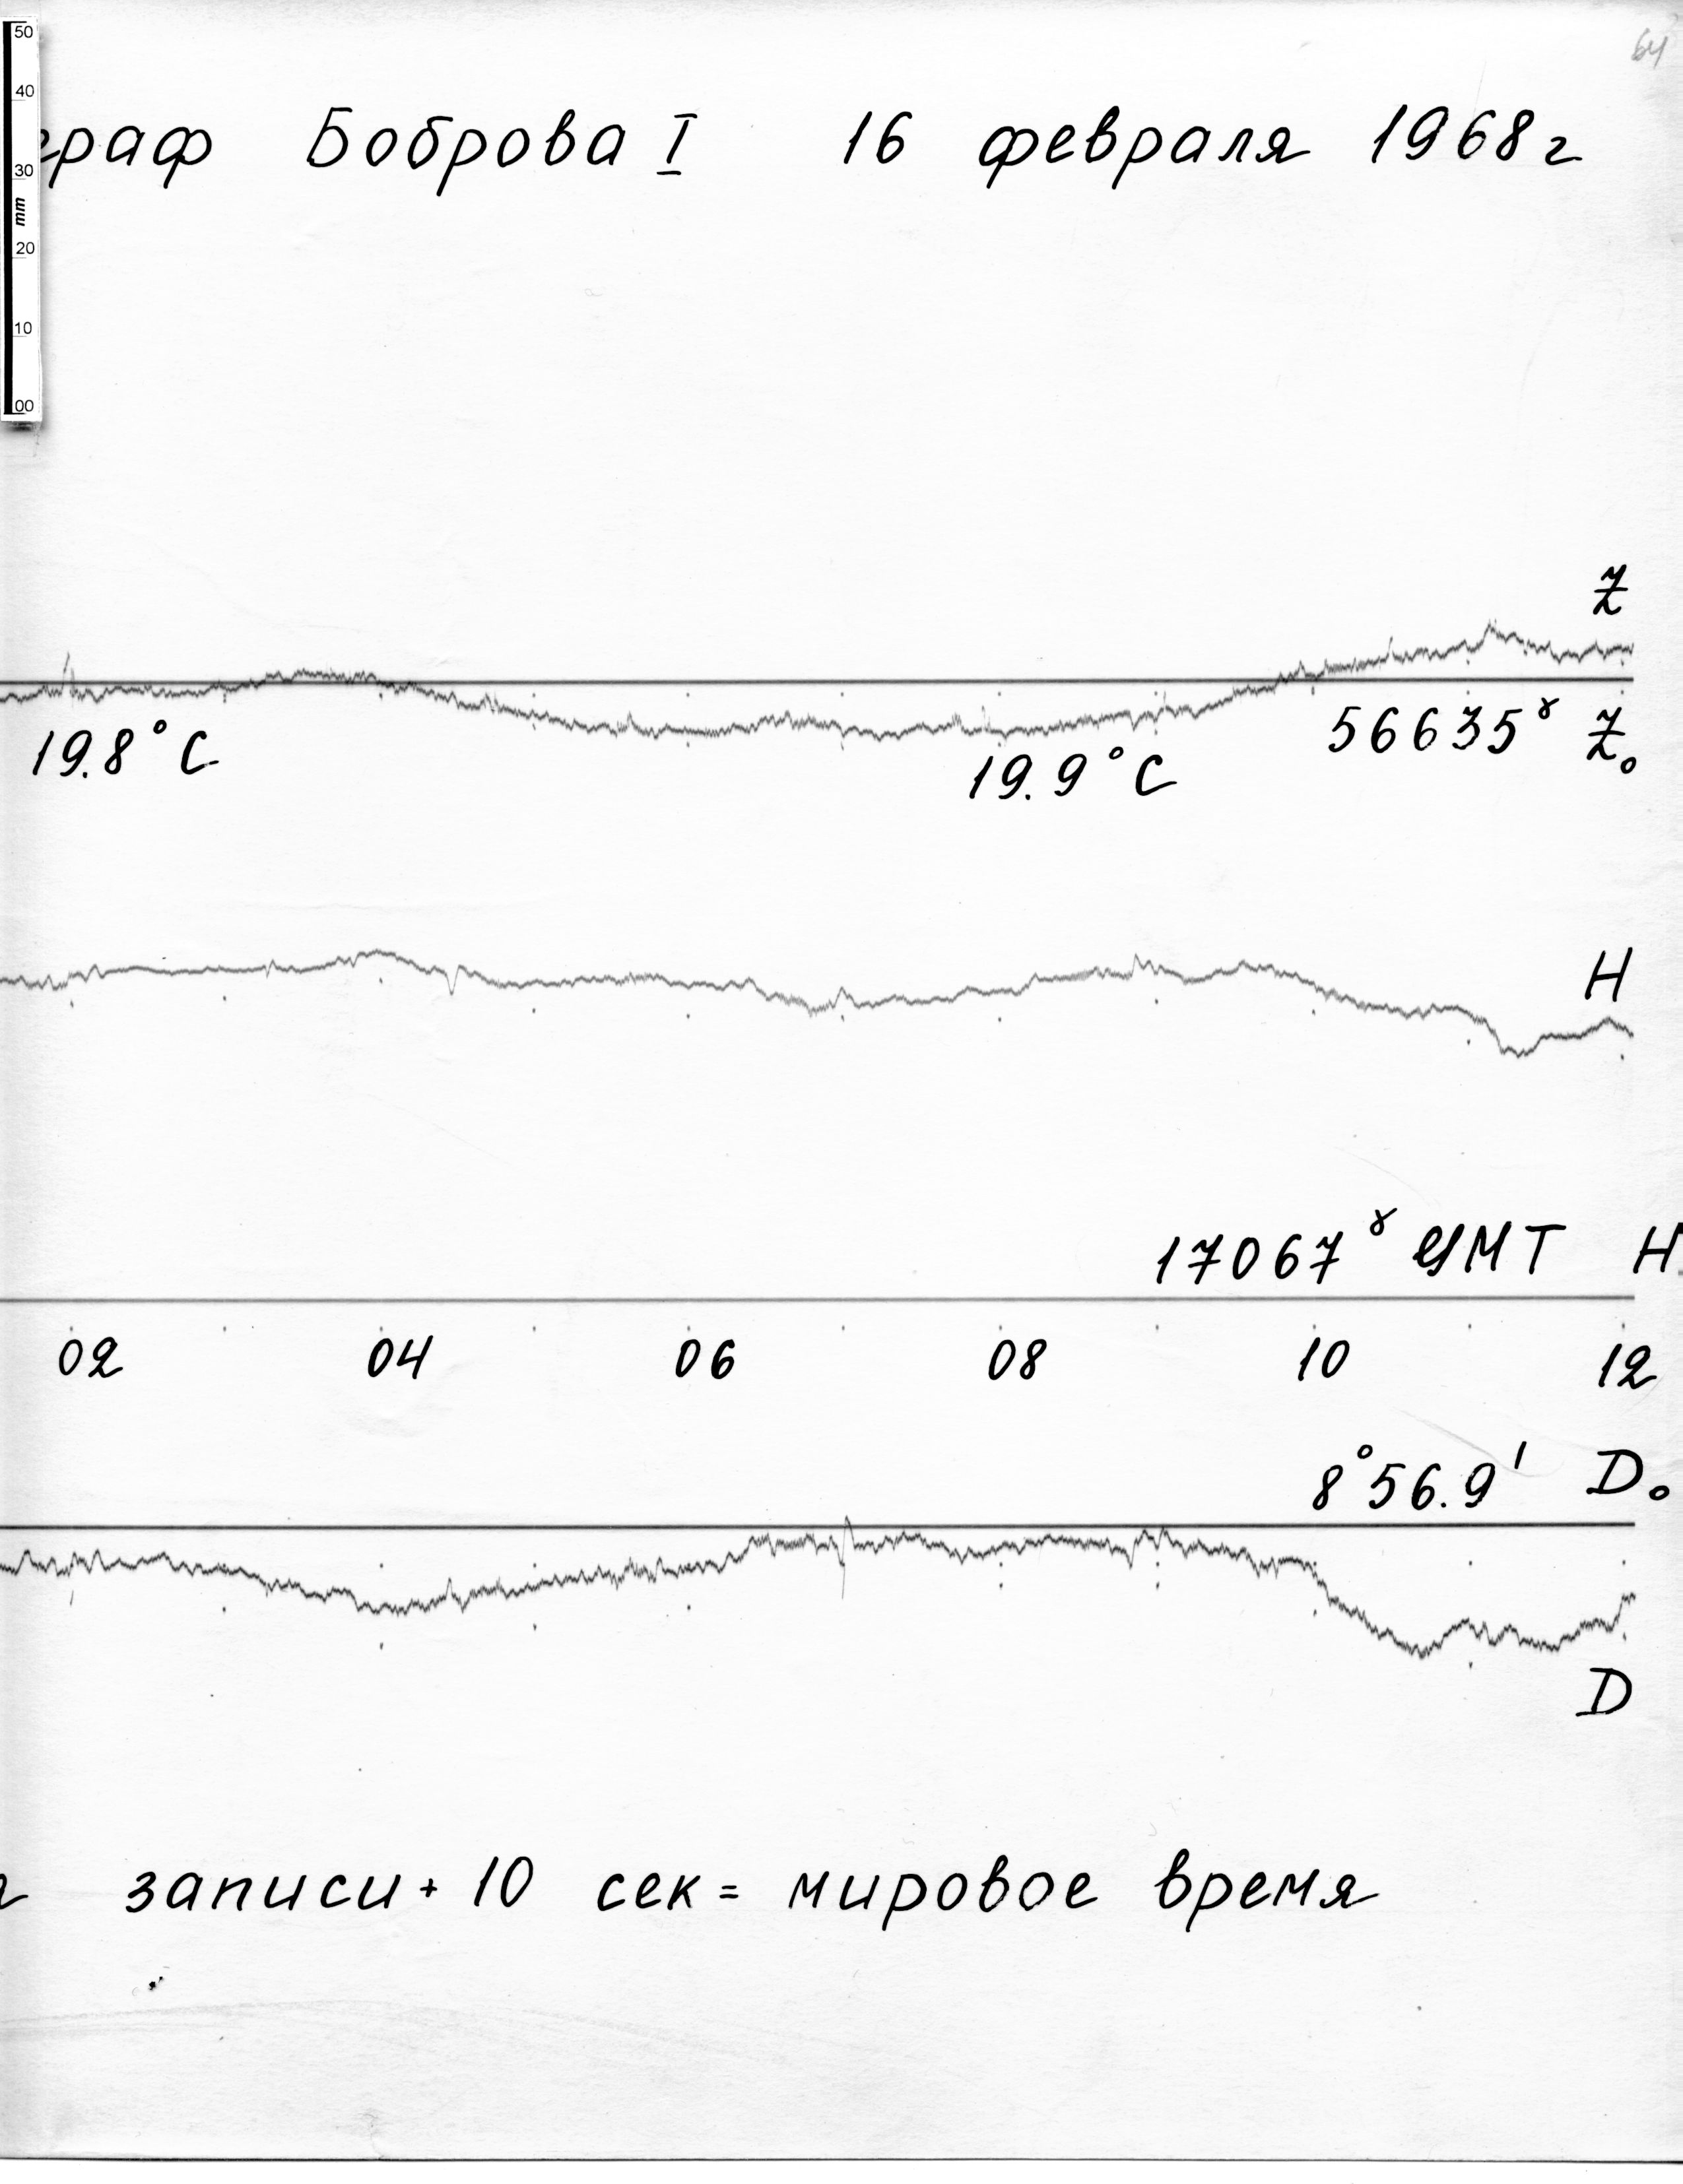 64
50
40
30
mm
20
10
00
граф Боброва I 16 февраля 1968 г
Z
19.8°C
19.9°C
56635γ Z₀
H
17067γ ЦМТ H
02 04 06 08 10 12
8°56.9' D₀
D
записи + 10 сек = мировое время